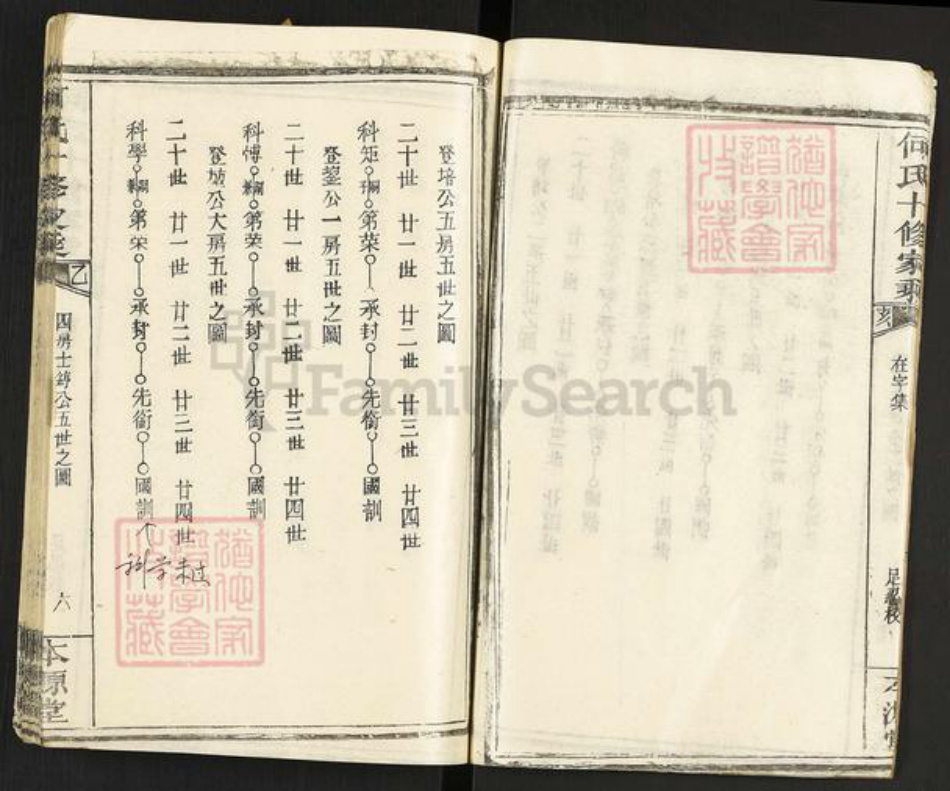 何氏十修家乘
在字集
登培公五房五世之圖
二十世 廿一世 廿二世 廿三世 廿四世
科矩 子嗣 第榮 承封 先銜 國訓
登鋆公一房五世之圖
二十世 廿一世 廿二世 廿三世 廿四世
科博 第荣 承封 先銜 國訓
登城公大房五世之圖
二十世 廿一世 廿二世 廿三世 廿四世
科學 第宋 承封 先銜 國訓
科学未注
乙
四房士錞公五世之圖
六
本源堂
猶他家譜學會收藏
猶他家譜學會收藏
FamilySearch